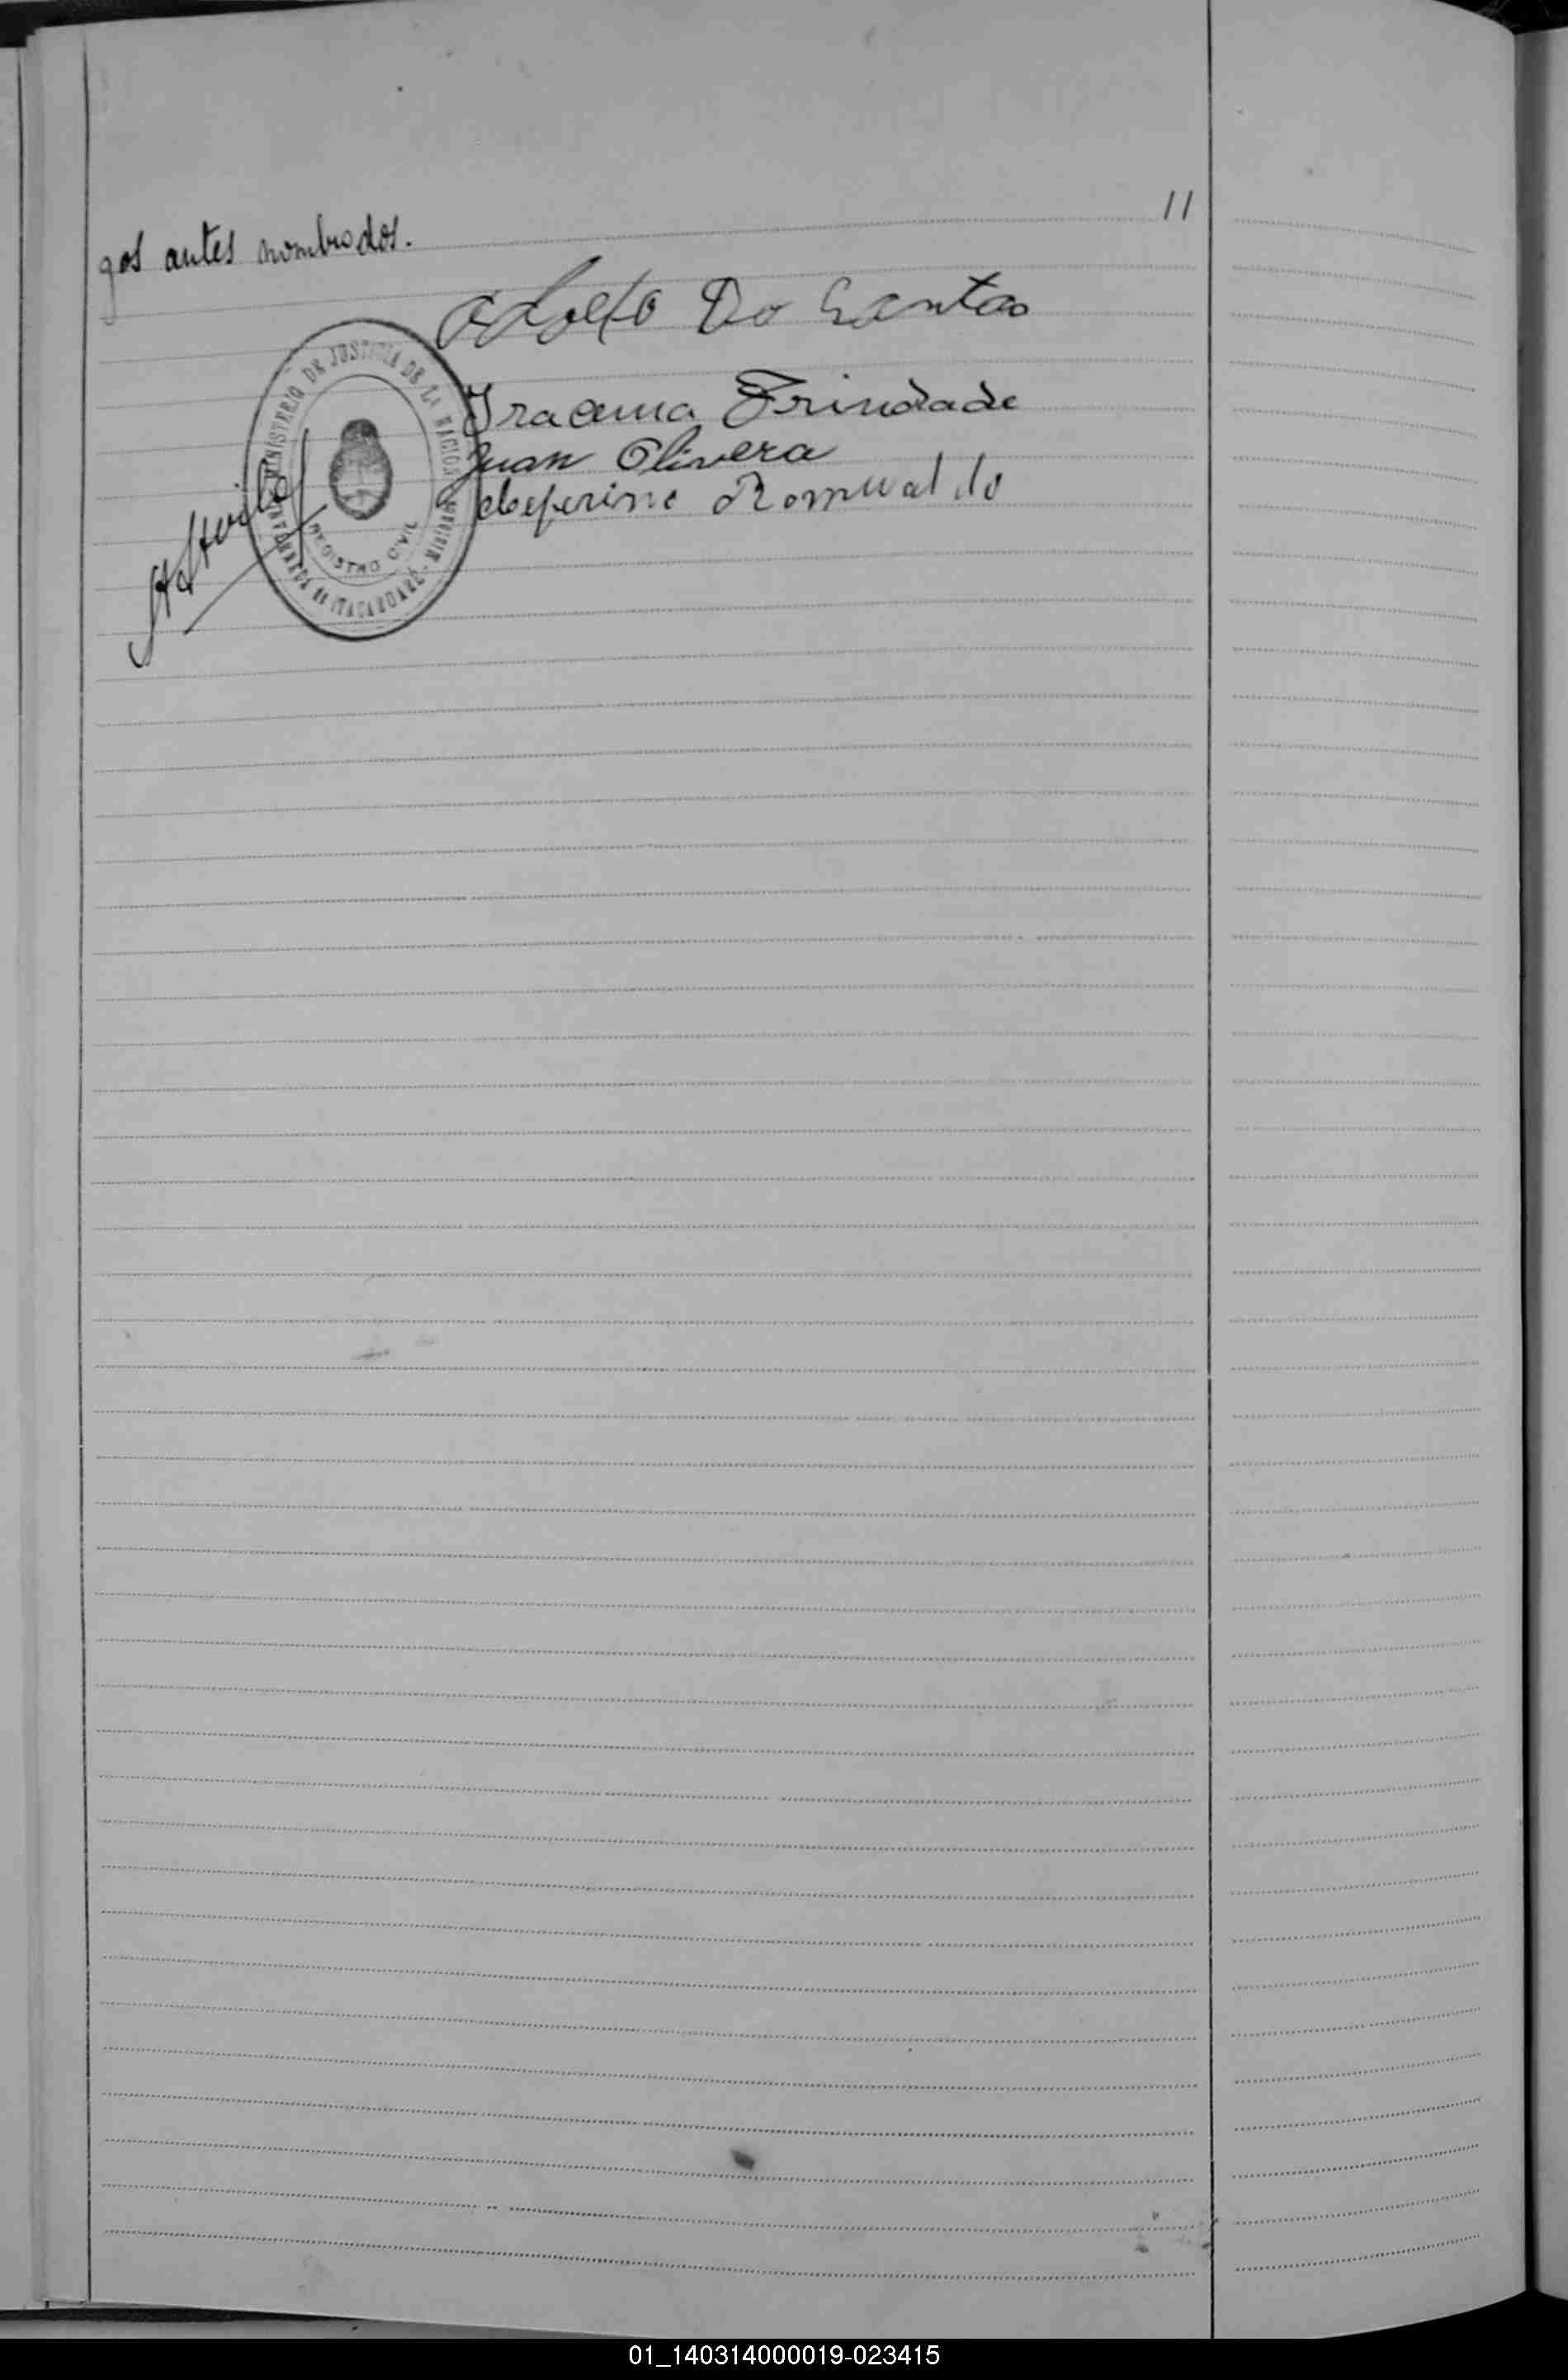 11
gos antes nombrados.
Adolfo Do Santos
Iracema Trindade
Juan Olivera
Ceferino Romualdo
MINISTERIO DE JUSTICIA DE LA NACION
REGISTRO CIVIL
ITACARUARE - MISIONES
01_140314000019-023415